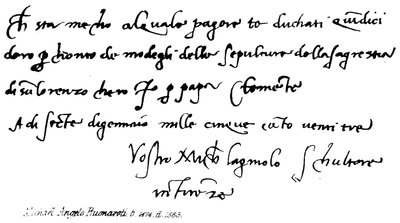 sta mecho al quale pagore te duchati quindici
doro p chonto de modegli delle sepulture della sagrestia
di san lorenzo che io fo p papa Clemente
A di secte di gennaio mille cinque cento venti tre
Vostro Michelagniolo schultore
in firenze
Angelo Buonaroti. b. 1474. d. 1563.